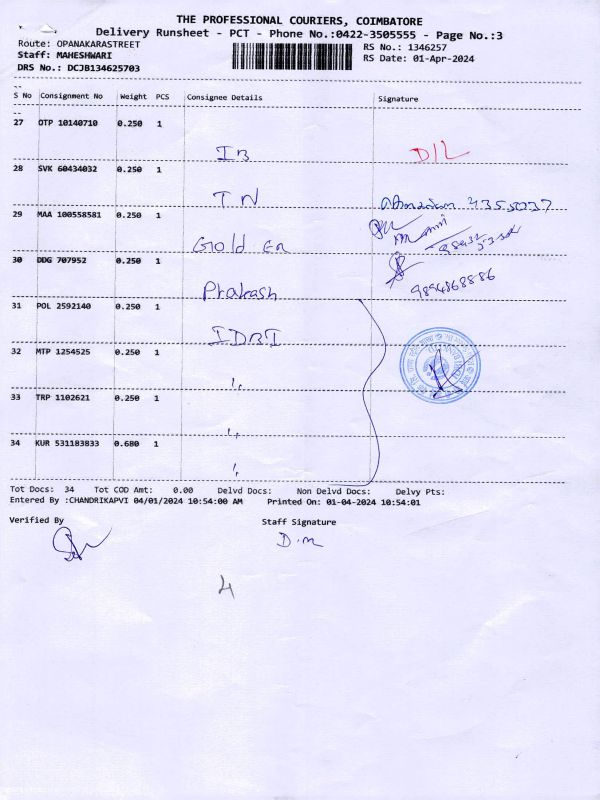 THE PROFESSIONAL COURIERS, COIMBATORE
Delivery Runsheet - PCT - Phone No.:0422-3505555 - Page No.:3
Route: OPANAKARASTREET
Staff: MAHESHWARI
DRS No.: DCJB134625703
RS No.: 1346257
RS Date: 01-Apr-2024
--
S No Consignment No Weight PCS Consignee Details Signature
--
27 OTP 10140710 0.250 1
IB D/L
28 SVK 60434032 0.250 1
TN 4355037
29 MAA 100558581 0.250 1
Gold en
30 DDG 707952 0.250 1
Prakash 9894868886
31 POL 2592140 0.250 1
IDBI
32 MTP 1254525 0.250 1
"
33 TRP 1102621 0.250 1
"
34 KUR 531183833 0.680 1
"
Tot Docs: 34 Tot COD Amt: 0.00 Delvd Docs: Non Delvd Docs: Delvy Pts:
Entered By :CHANDRIKAPVI 04/01/2024 10:54:00 AM Printed On: 01-04-2024 10:54:01
Verified By Staff Signature
D.m
4